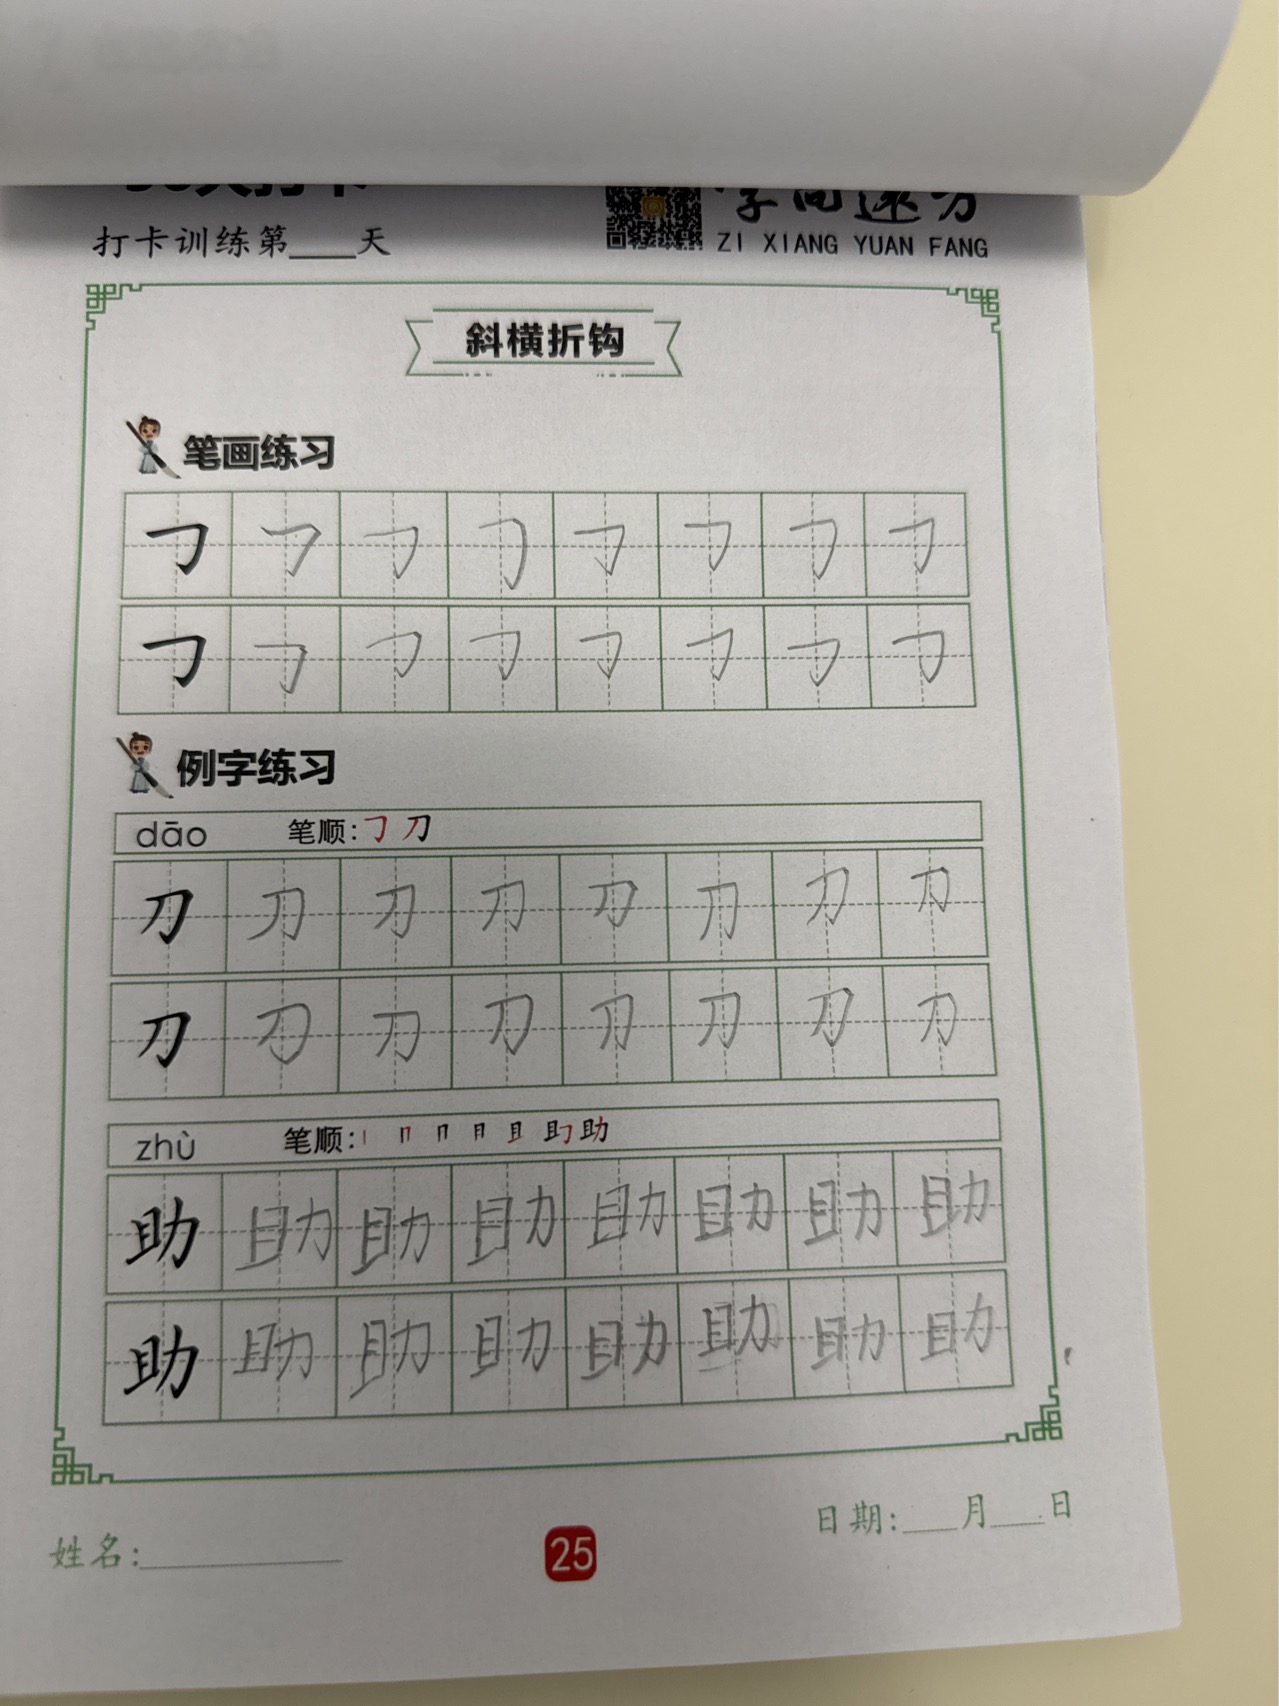 打卡训练第___天
ZI XIANG YUAN FANG
斜横折钩
笔画练习
㇆ ㇆ ㇆ ㇆ ㇆ ㇆ ㇆ ㇆
㇆ ㇆ ㇆ ㇆ ㇆ ㇆ ㇆ ㇆
例字练习
dāo 笔顺:㇆ 刀
刀 刀 刀 刀 刀 刀 刀 刀
刀 刀 刀 刀 刀 刀 刀 刀
zhù 笔顺:
助 助 助 助 助 助 助 助
助 助 助 助 助 助 助 助
日期:___月___日
姓名:
25